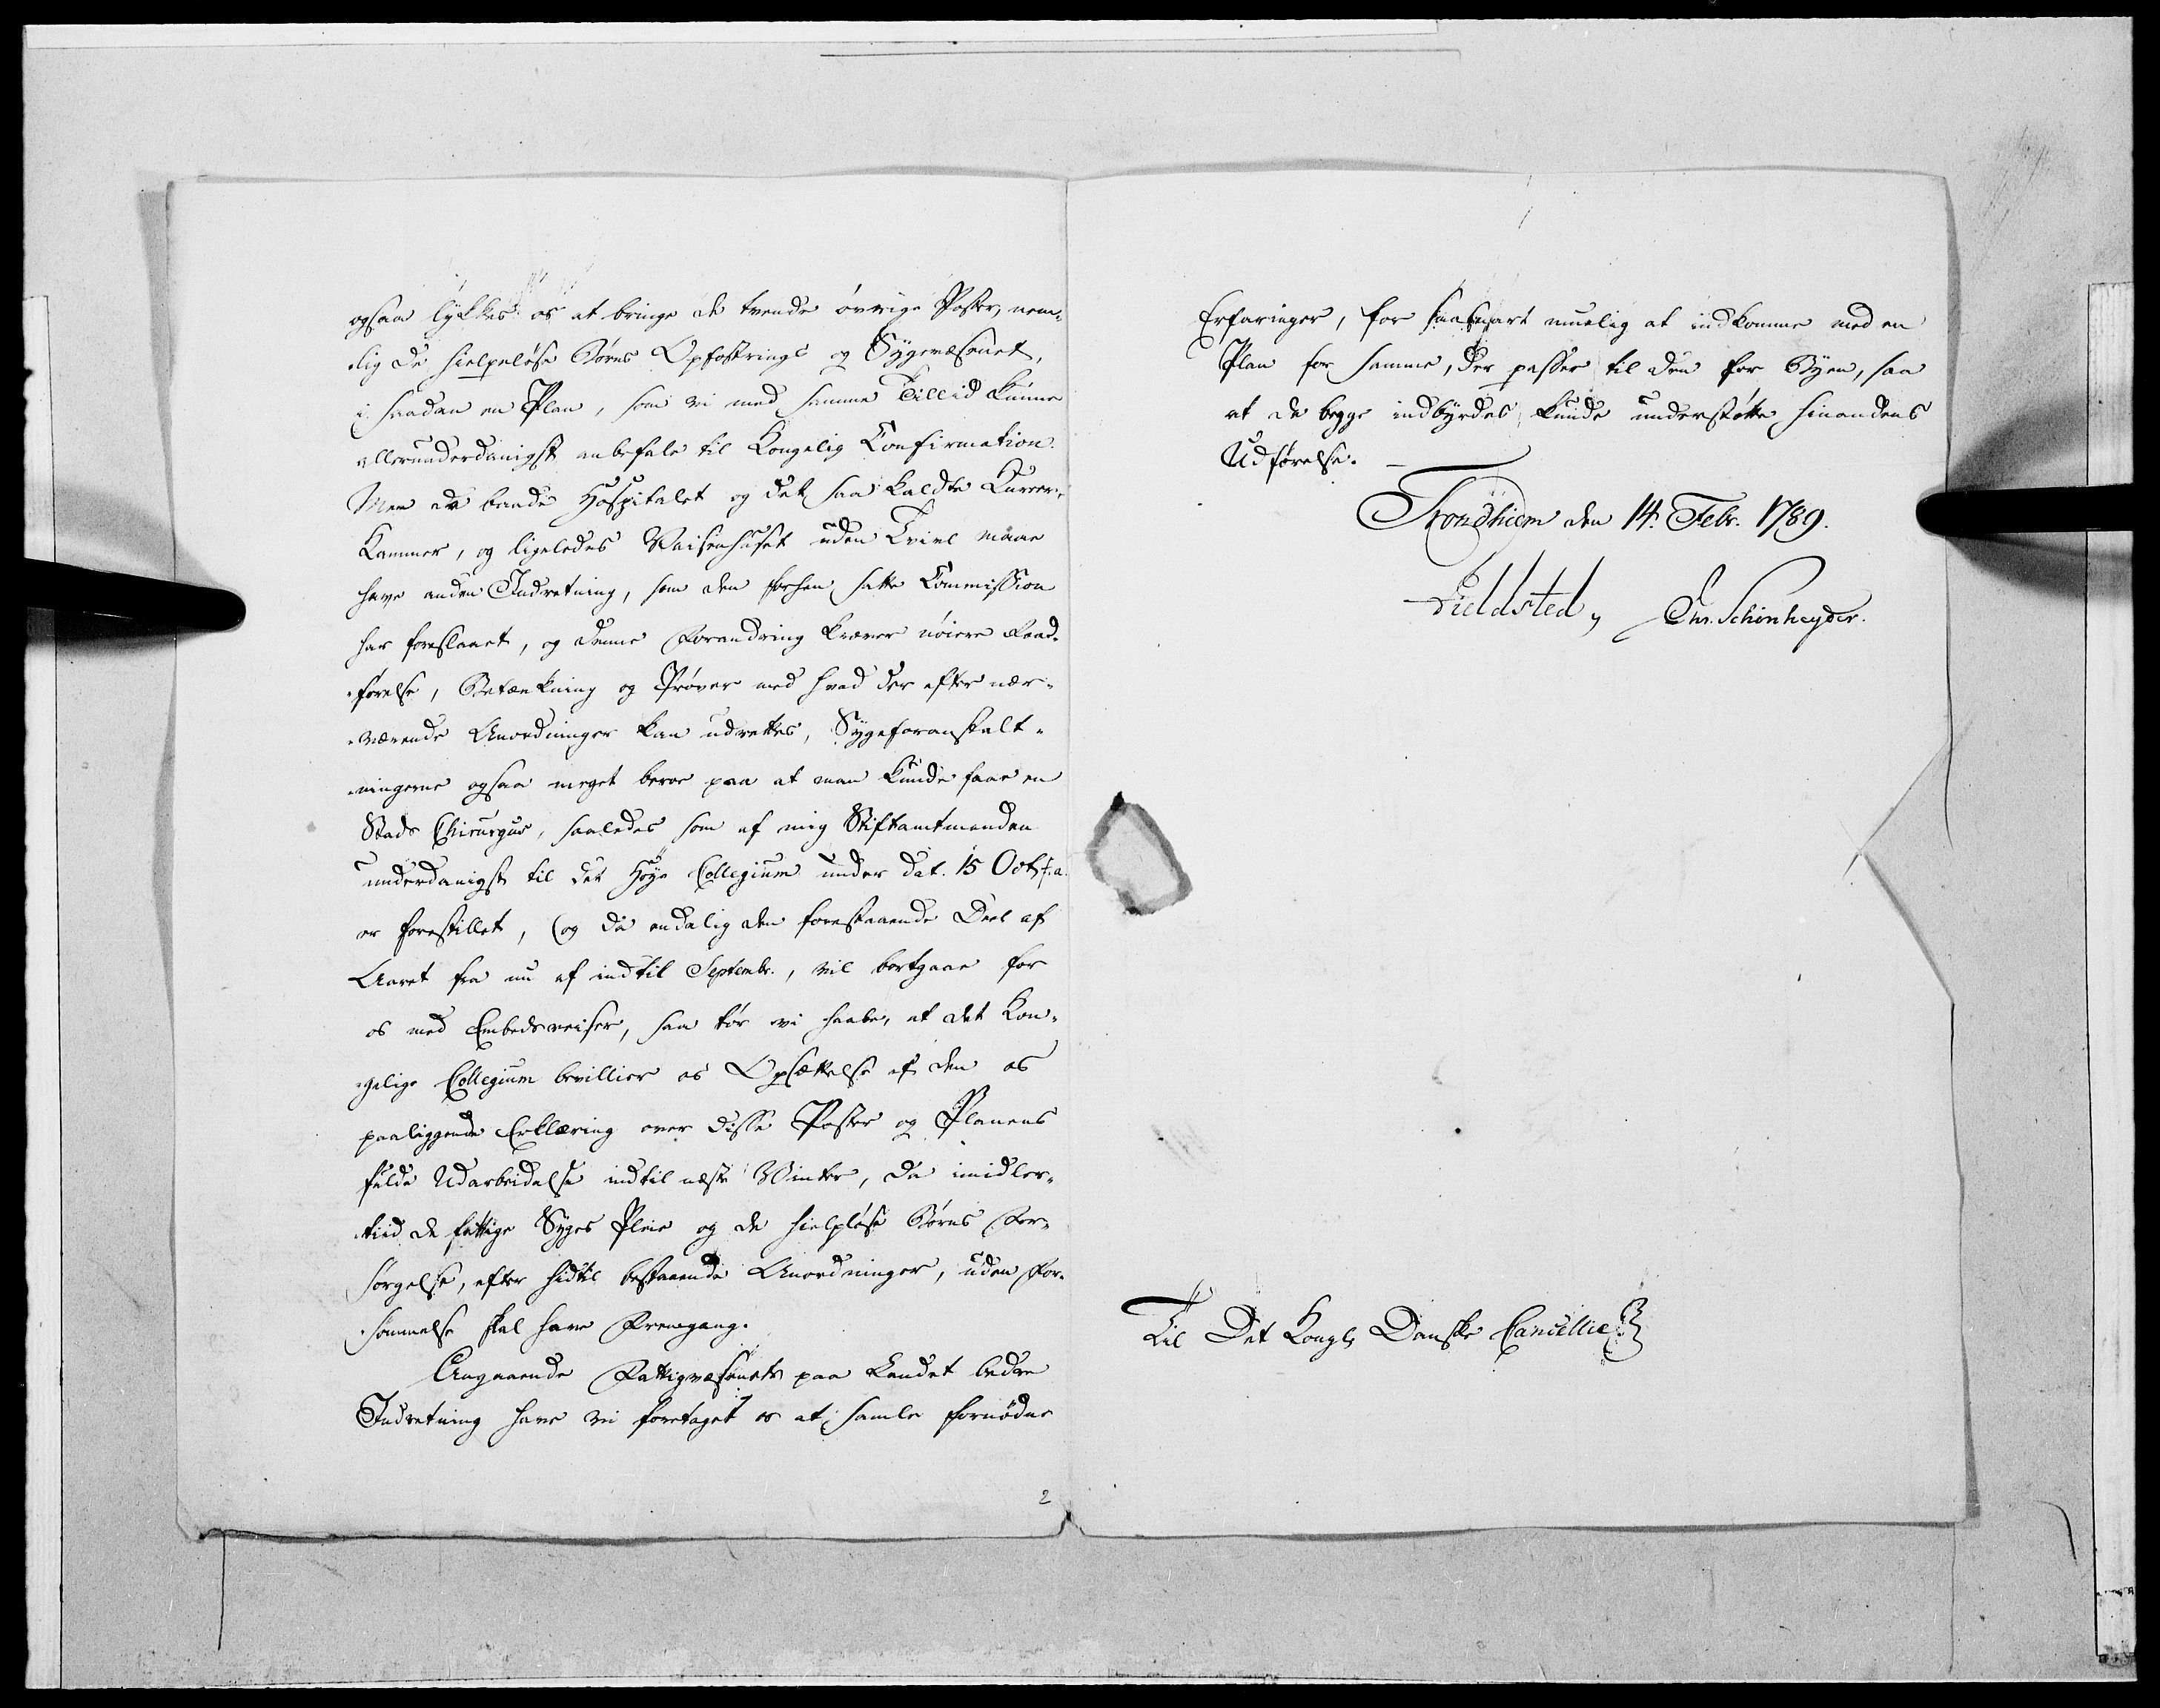 ogsaa lykkes os at bringe de tvende øvrige Poster, nem-
lig de hielpeløse Børns Opfostrings og Sygevæsenet,
i saadan en Plan, som vi med samme Tillid kunne
allerunderdanigst anbefale til Kongelig Confirmation.
Men da baade Hospitalet og det saa kaldte Kurer-
Kammer, og ligeledes Waisenhuset uden Tvivl maae
have anden Indretning, som den forhen satte Commission
har foreslaaet, og denne Forandring kræver nøiere Raad-
førelse, Betænkning og Prøver med hvad der efter nær-
værende Anordninger kan udrettes, Sygeforanstalt-
ningerne ogsaa meget beroe paa at man kunde faae en
Stads Chirurgus, saaledes som af mig Stiftamtmanden
underdanigst til det Høye Collegium under dat. 15 Octb f. a.
er forestillet, (og da endelig den forestaaende Deel af
Aaret fra nu af indtil Septembr., vil bortgaae for
os med Embedsreiser, saa tør vi haabe, at det Kon-
gelige Collegium bevillier os Opsættelse af den os
paaliggende Erklæring over disse Poster og Planens
fulde Udarbeidelse indtil næste Winter, da imidler-
tiid de fattige Syges Pleie og de hielpløse Børns For-
sørgelse, efter hidtil bestaaende Anordninger, uden For-
sømmelse skal have Fremgang.
Angaaende Fattigvæsenets paa Landet bedre
Indretning have vi foretaget os at samle fornødne
2
Erfaringer, for saasnart muelig at indkomme med en
Plan for samme, der passer til den for Byen, saa
at de begge indbyrdes kunde understøtte hinandens
Udførelse. —
Trondhiem den 14. Febr. 1789.
Fieldsted, Chr. Schønheyder.
Til Det Kongl. Danske Cancellie